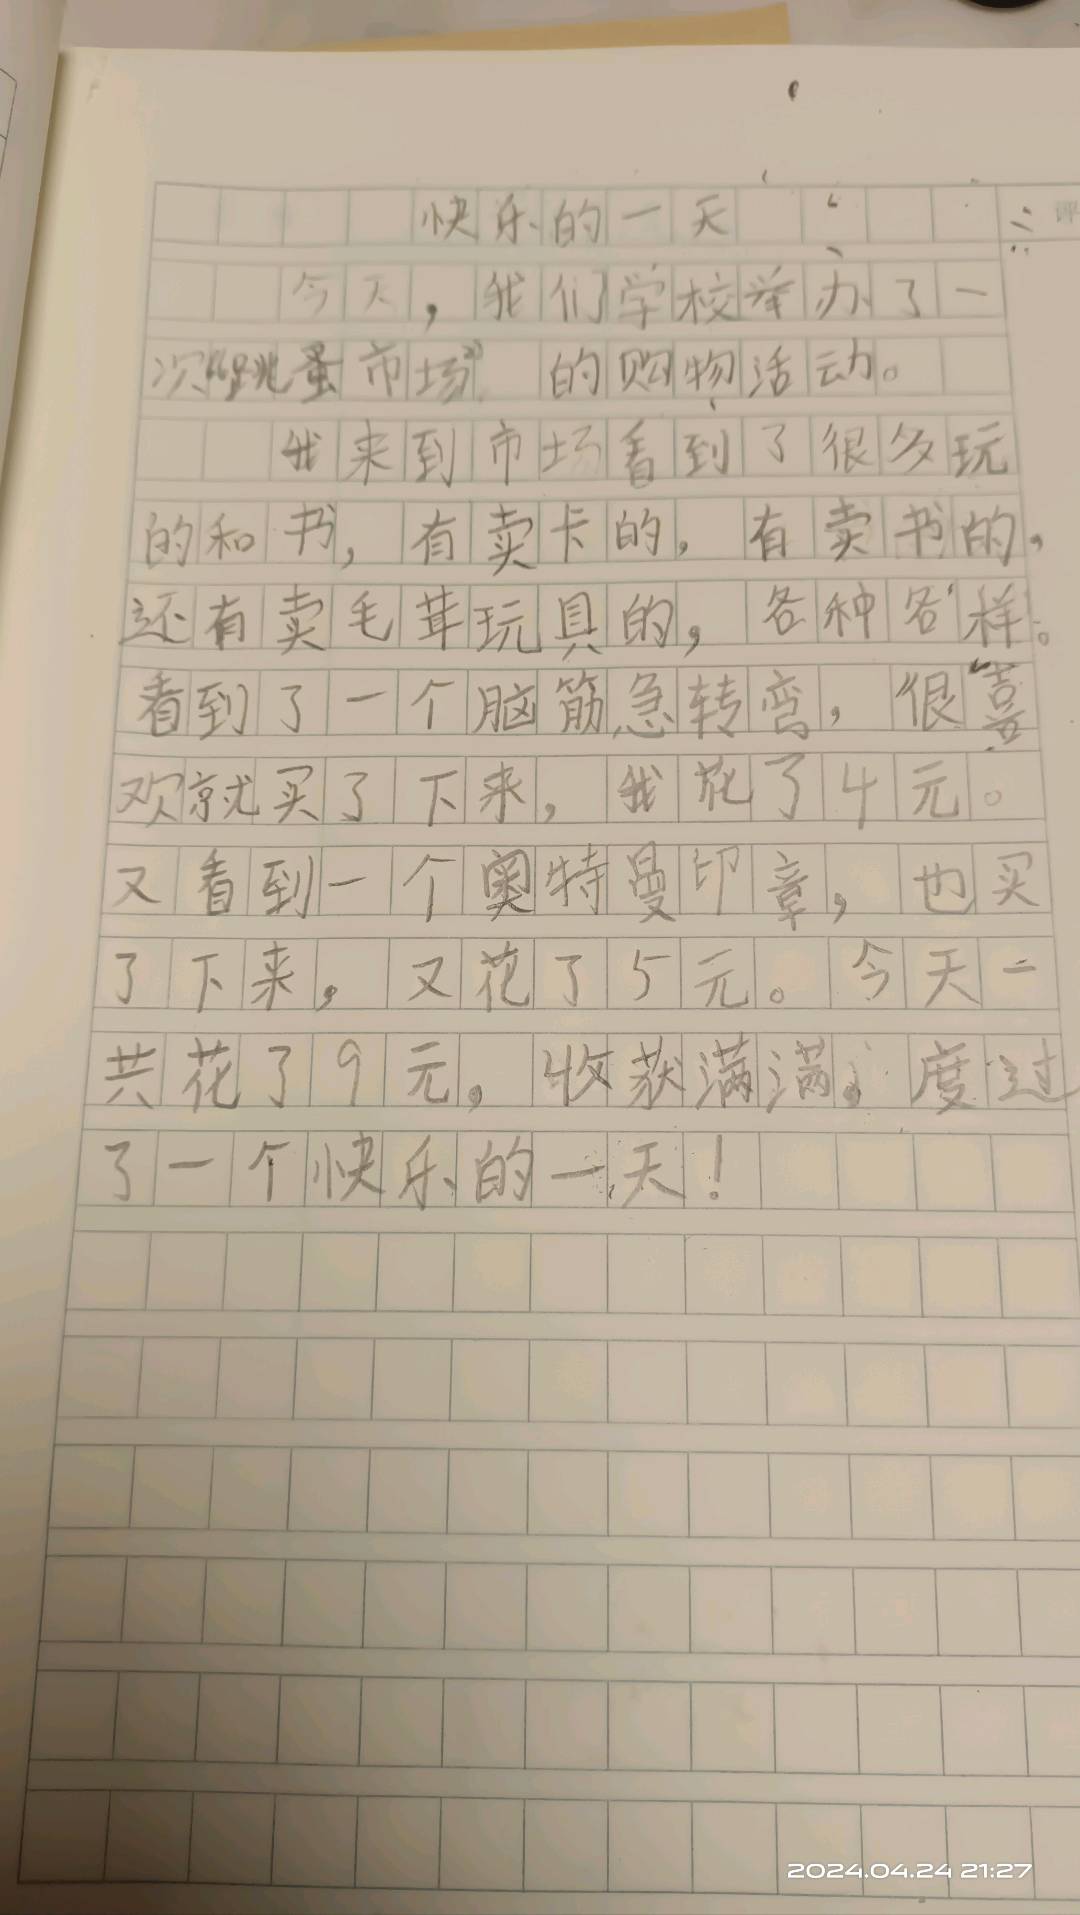 快乐的一天
今天，我们学校举办了一
次“跳蚤市场”的购物活动。
我来到市场看到了很多玩
的和书，有卖卡的，有卖书的，
还有卖毛茸玩具的，各种各样。
看到了一个脑筋急转弯，很喜
欢就买了下来，我花了4元。
又看到一个奥特曼印章，也买
了下来，又花了5元。今天一
共花了9元，收获满满，度过
了一个快乐的一天！
2024.04.24 21:27